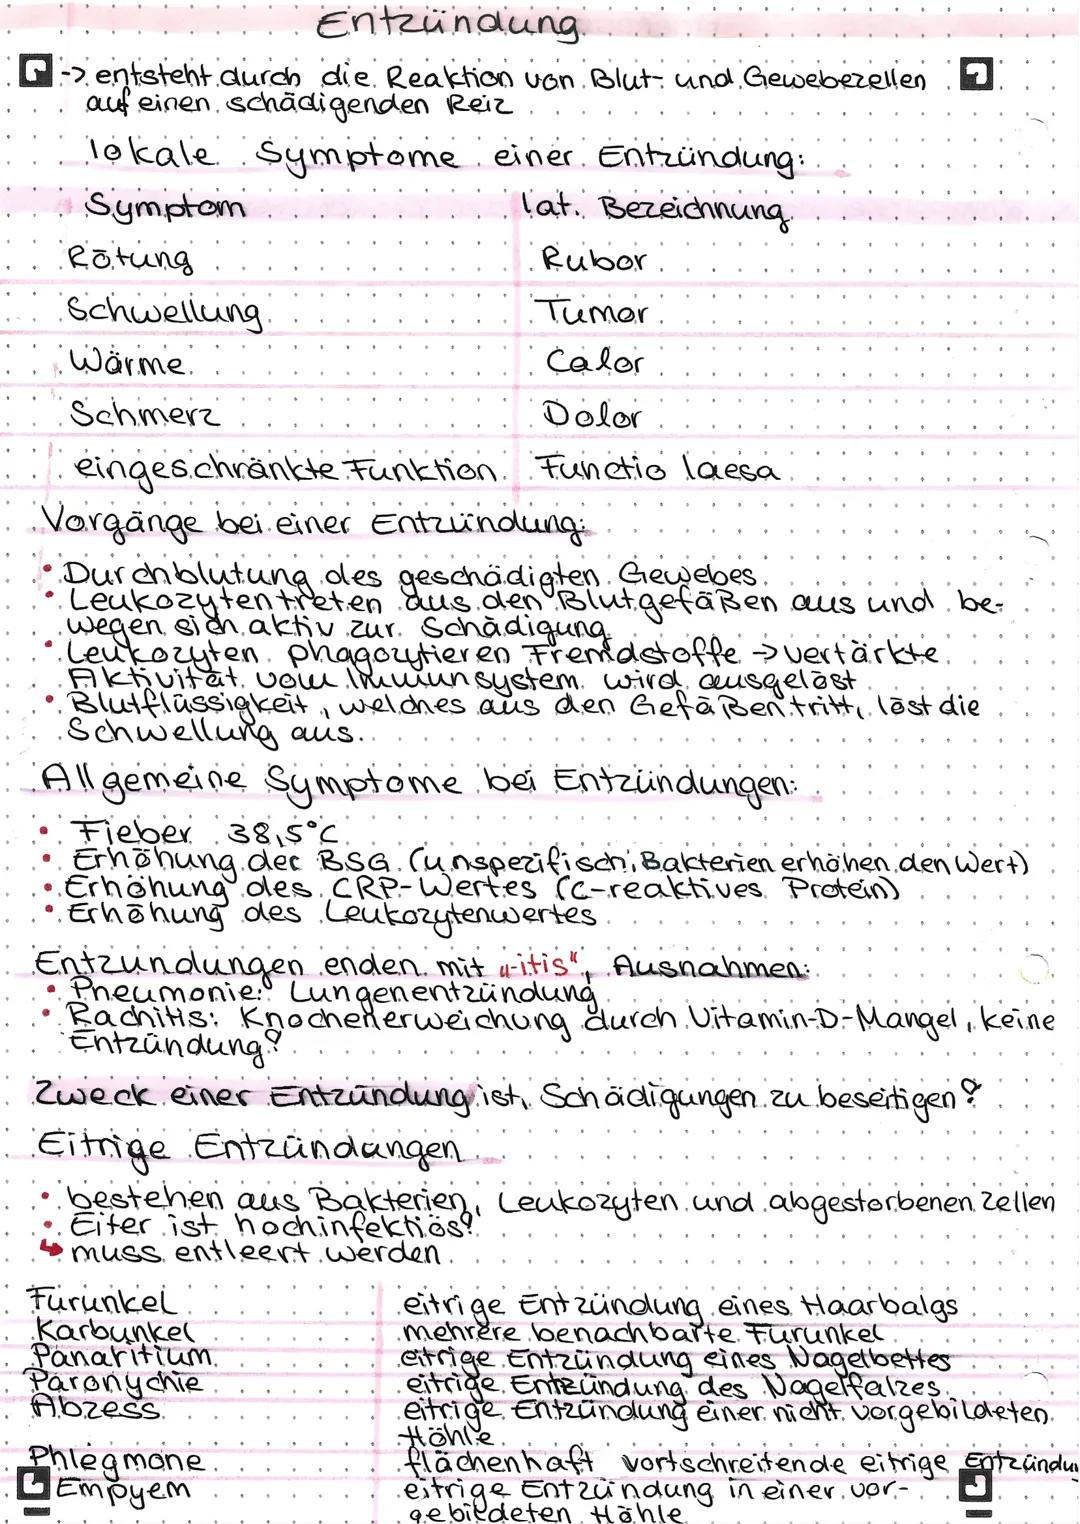 Entzündung
-> entsteht durch die Reaktion von Blut- und Gewebezellen
auf einen schädigenden Reiz
lokale Symptome einer Entzündung:
Symptom lat. Bezeichnung
Rötung Rubor
Schwellung Tumor
Wärme Calor
Schmerz Dolor
eingeschränkte Funktion Functio laesa
Vorgänge bei einer Entzündung:
• Durchblutung des geschädigten Gewebes
• Leukozyten treten aus den Blutgefäßen aus und be-
wegen sich aktiv zur Schädigung
• Leukozyten phagozytieren Fremdstoffe -> vertärkte
Aktivität vom Immunsystem wird ausgelöst
• Blutflüssigkeit, welches aus den Gefäßen tritt, löst die
Schwellung aus.
Allgemeine Symptome bei Entzündungen:
• Fieber 38,5°C
• Erhöhung der BSG (unspezifisch, Bakterien erhöhen den Wert)
• Erhöhung des CRP-Wertes (C-reaktives Protein)
• Erhöhung des Leukozytenwertes
Entzundungen enden mit „-itis“, Ausnahmen:
• Pneumonie: Lungenentzündung
• Rachitis: Knochenerweichung durch Vitamin-D-Mangel, keine
Entzündung!
Zweck einer Entzündung ist, Schädigungen zu beseitigen!
Eitrige Entzündungen
• bestehen aus Bakterien, Leukozyten und abgestorbenen Zellen
• Eiter ist hochinfektiös!
↳ muss entleert werden
Furunkel eitrige Entzündung eines Haarbalgs
Karbunkel mehrere benachbarte Furunkel
Panaritium eitrige Entzündung eines Nagelbettes
Paronychie eitrige Entzündung des Nagelfalzes
Abzess eitrige Entzündung einer nicht vorgebildeten
Höhle
Phlegmone flächenhaft vortschreitende eitrige Entzündu
Empyem eitrige Entzündung in einer vor-
gebildeten Höhle